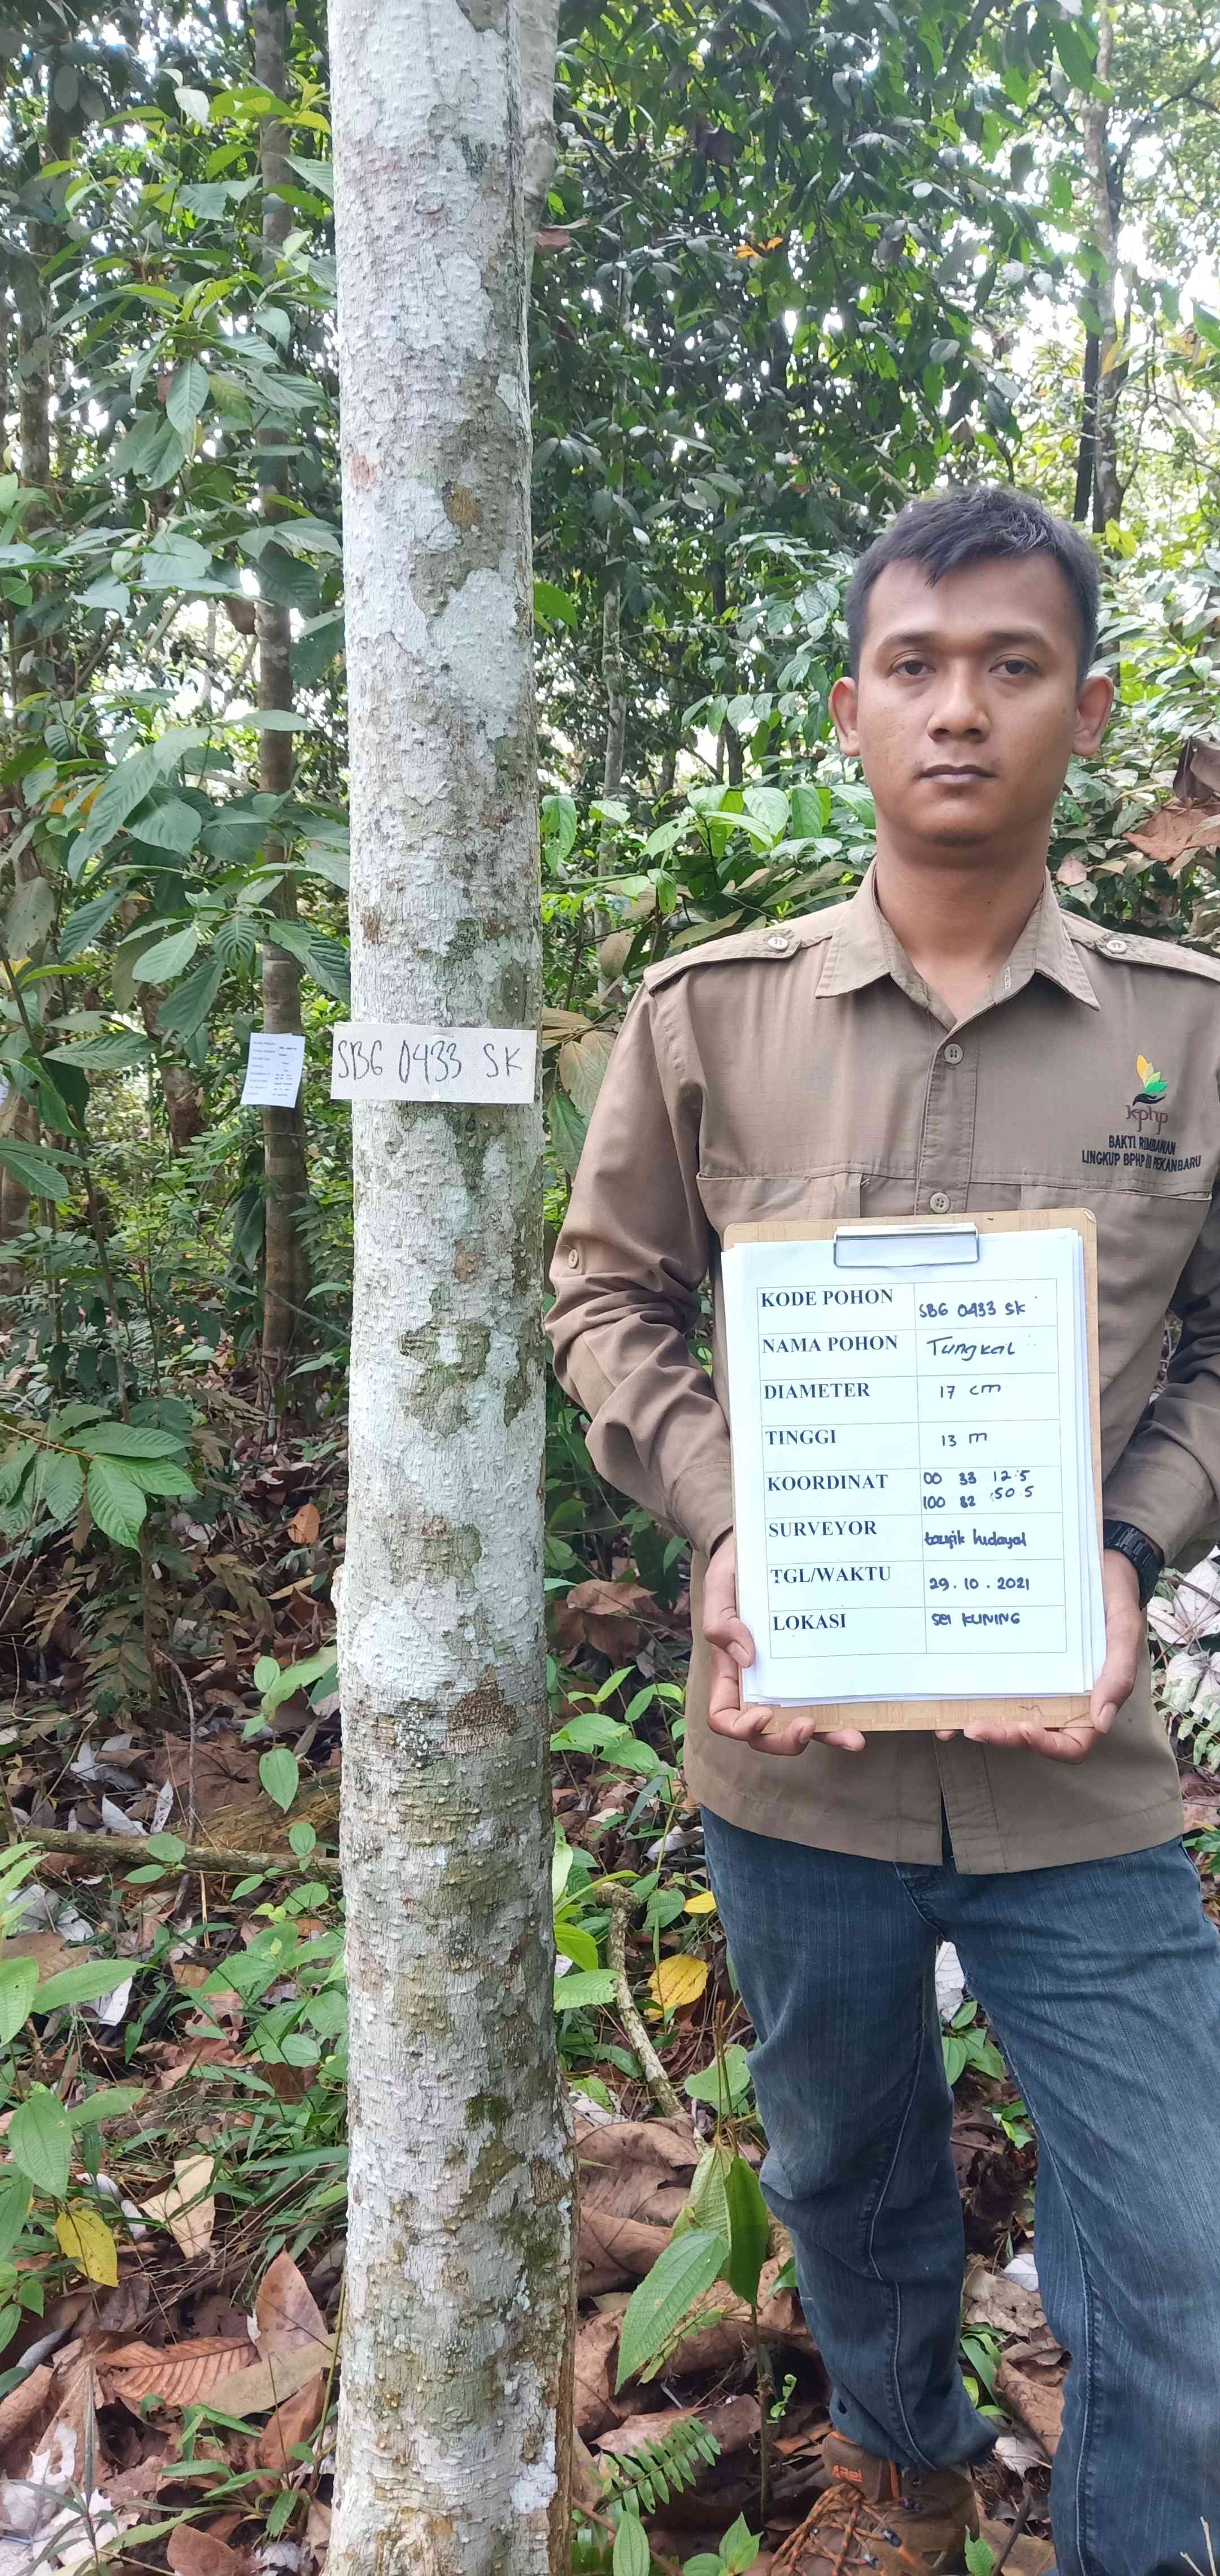 SBG 0433 SK
kphp
BAKTI RIMBAWAN
LINGKUP BPHP III PEKANBARU
KODE POHON SBG 0433 SK
NAMA POHON Tungkal
DIAMETER 17 cm
TINGGI 13 m
KOORDINAT 00 33 12.5
100 82 50.5
SURVEYOR taufik hidayat
TGL/WAKTU 29.10.2021
LOKASI SEI KUNING